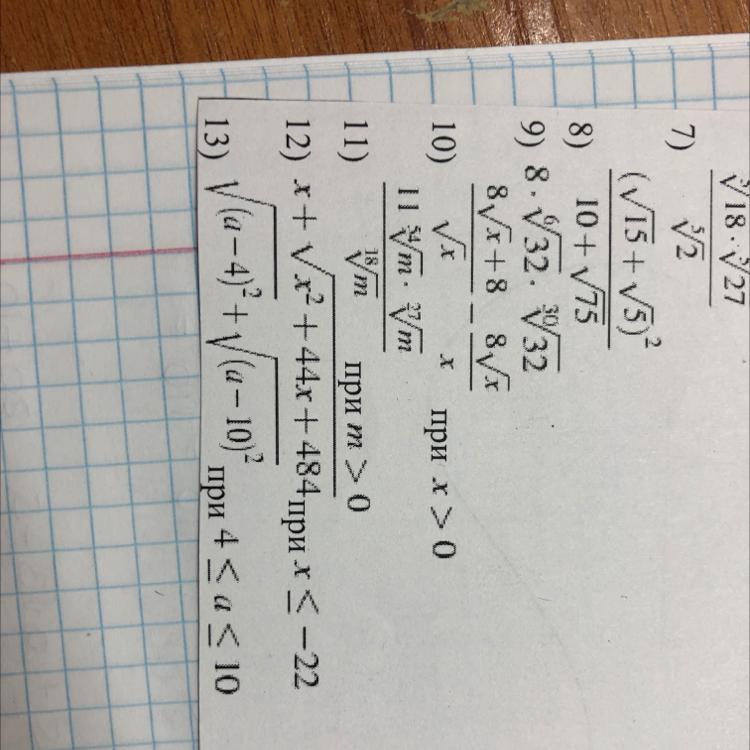 7) \frac{\sqrt[5]{18} \cdot \sqrt[5]{27}}{\sqrt[5]{2}}
8) \frac{(\sqrt{15} + \sqrt{5})^2}{10 + \sqrt{75}}
9) 8 \cdot \sqrt[6]{32} \cdot \sqrt[30]{32}
10) \frac{8\sqrt{x} + 8}{\sqrt{x}} - \frac{8\sqrt{x}}{x} при x > 0
11) \frac{11 \sqrt[54]{m} \cdot \sqrt[27]{m}}{\sqrt[18]{m}} при m > 0
12) x + \sqrt{x^2 + 44x + 484} при x ≤ -22
13) \sqrt{(a-4)^2} + \sqrt{(a-10)^2} при 4 ≤ a ≤ 10